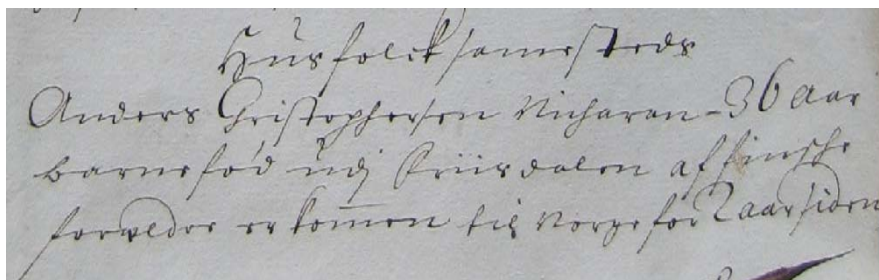 Husfolck samesteds
Anders Christophersen Nicharan - 36 aar
barnefød udj Friisdalen af finsche
forældre er kommen til Norge for 2 aar siden